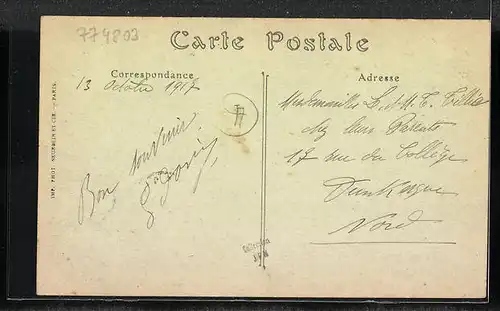 774803
Carte Postale
Correspondance
13 Octobre 1917
Bon souvenir
Adresse
Mesdemoiselles
chez leurs Parents
17 rue du Collège
Dunkerque
Nord
IMP. PHOT. NEURDEIN ET CIE. - PARIS.